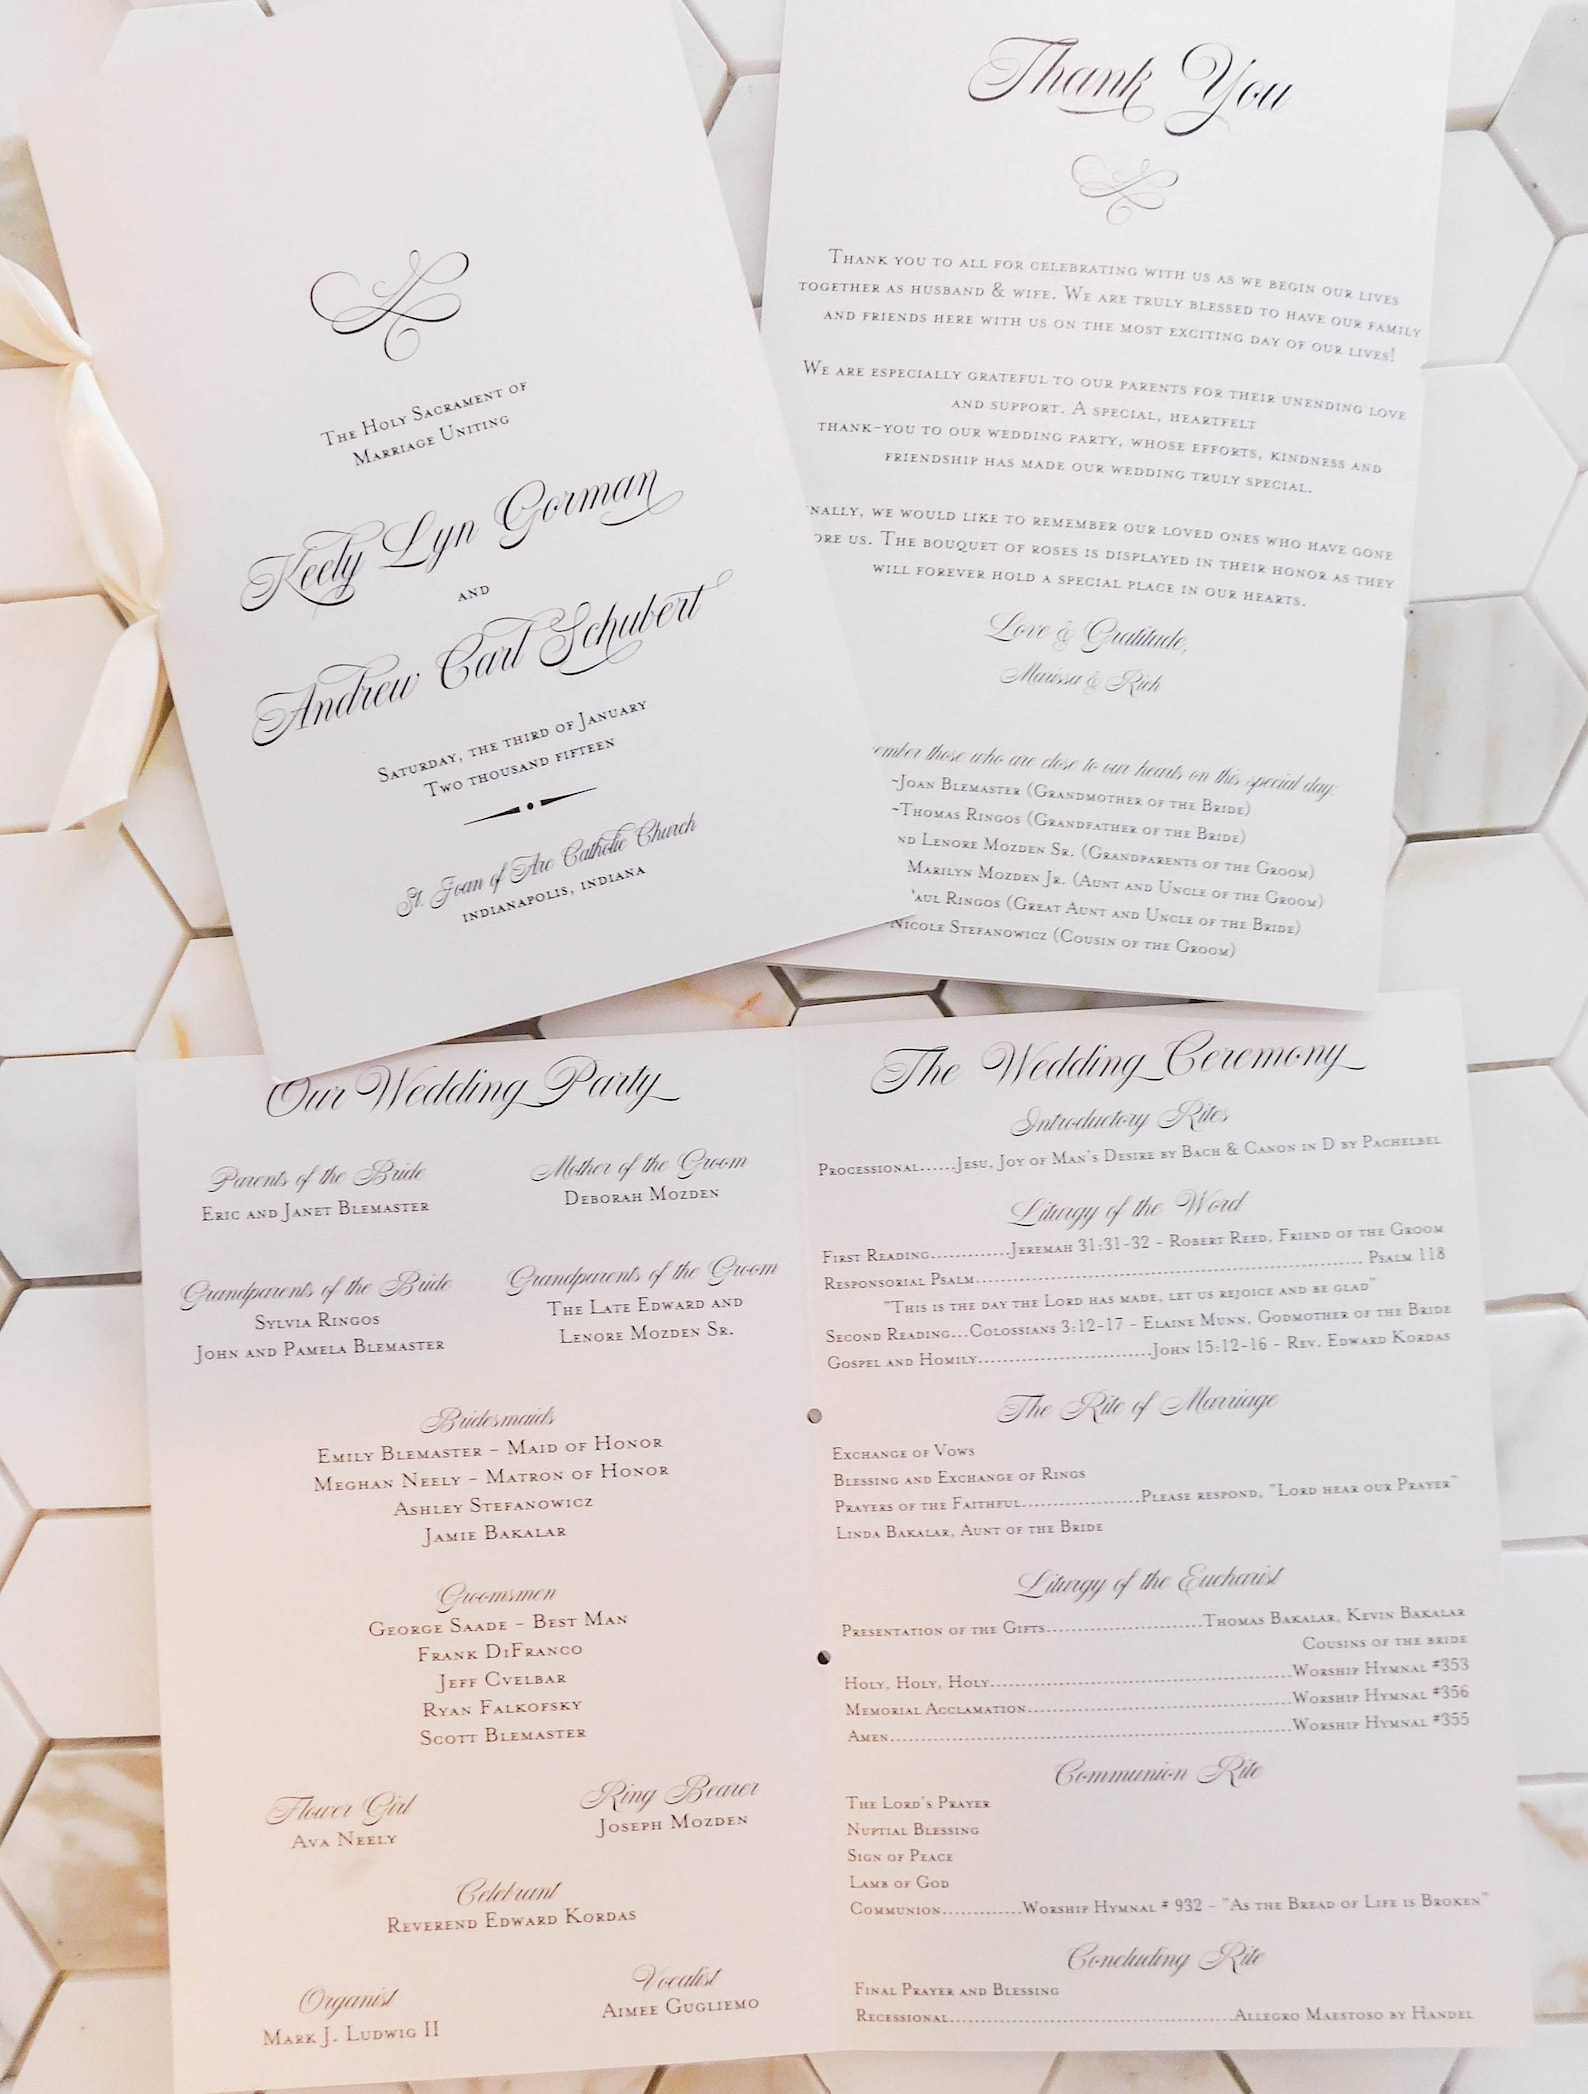 The Holy Sacrament of
Marriage Uniting
Keely Lyn Gorman
and
Andrew Carl Schubert
Saturday, the third of January
Two thousand fifteen
St. Joan of Arc Catholic Church
Indianapolis, Indiana
Thank You
Thank you to all for celebrating with us as we begin our lives
together as husband & wife. We are truly blessed to have our family
and friends here with us on the most exciting day of our lives!
We are especially grateful to our parents for their unending love
and support. A special, heartfelt
thank-you to our wedding party, whose efforts, kindness and
friendship has made our wedding truly special.
we would like to remember our loved ones who have gone
us. The bouquet of roses is displayed in their honor as they
will forever hold a special place in our hearts.
Love & Gratitude,
Marissa & Rich
those who are close to our hearts on this special day:
~Joan Blemaster (Grandmother of the Bride)
~Thomas Ringos (Grandfather of the Bride)
Lenore Mozden Sr. (Grandparents of the Groom)
Marilyn Mozden Jr. (Aunt and Uncle of the Groom)
Ringos (Great Aunt and Uncle of the Bride)
Nicole Stefanowicz (Cousin of the Groom)
Our Wedding Party
Parents of the Bride
Eric and Janet Blemaster
Mother of the Groom
Deborah Mozden
Grandparents of the Bride
Sylvia Ringos
John and Pamela Blemaster
Grandparents of the Groom
The Late Edward and
Lenore Mozden Sr.
Bridesmaids
Emily Blemaster - Maid of Honor
Meghan Neely - Matron of Honor
Ashley Stefanowicz
Jamie Bakalar
Groomsmen
George Saade - Best Man
Frank DiFranco
Jeff Cvelbar
Ryan Falkofsky
Scott Blemaster
Flower Girl
Ava Neely
Ring Bearer
Joseph Mozden
Celebrant
Reverend Edward Kordas
Organist
Mark J. Ludwig II
Vocalist
Aimee Gugliemo
The Wedding Ceremony
Introductory Rites
Processional......Jesu, Joy of Man's Desire by Bach & Canon in D by Pachelbel
Liturgy of the Word
First Reading.............Jeremah 31:31-32 - Robert Reed, Friend of the Groom
Responsorial Psalm.................................................................. Psalm 118
"This is the day the Lord has made, let us rejoice and be glad"
Second Reading...Colossians 3:12-17 - Elaine Munn, Godmother of the Bride
Gospel and Homily.............................John 15:12-16 - Rev. Edward Kordas
The Rite of Marriage
Exchange of Vows
Blessing and Exchange of Rings
Prayers of the Faithful....................Please respond, "Lord hear our Prayer"
Linda Bakalar, Aunt of the Bride
Liturgy of the Eucharist
Presentation of the Gifts..........................Thomas Bakalar, Kevin Bakalar
Cousins of the bride
Holy, Holy, Holy...................................................Worship Hymnal #353
Memorial Acclamation.............................................Worship Hymnal #356
Amen...................................................................Worship Hymnal #355
Communion Rite
The Lord's Prayer
Nuptial Blessing
Sign of Peace
Lamb of God
Communion.............Worship Hymnal # 932 - "As the Bread of Life is Broken"
Concluding Rite
Final Prayer and Blessing
Recessional...............................................Allegro Maestoso by Handel